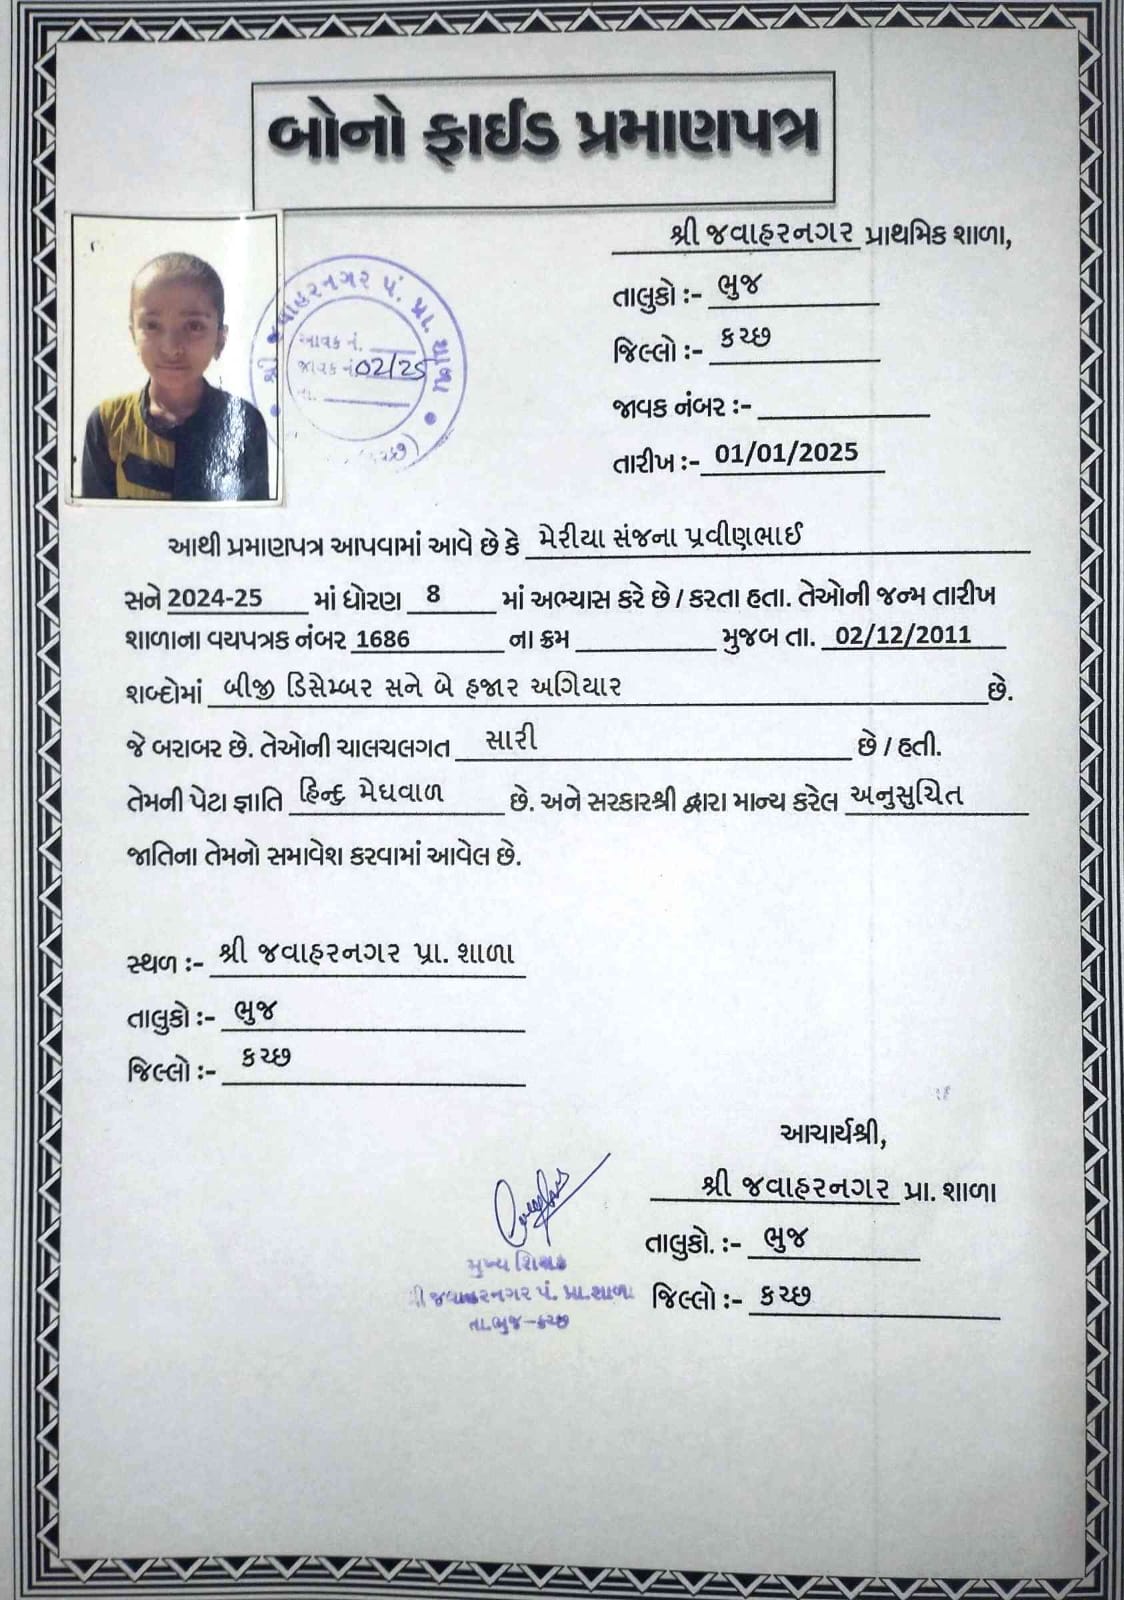 બોનો ફાઈડ પ્રમાણપત્ર
શ્રી જવાહરનગર પ્રાથમિક શાળા,
તાલુકો :- ભુજ
જિલ્લો :- કચ્છ
જાવક નંબર :-
તારીખ :- 01/01/2025
શ્રી જવાહરનગર પં. પ્રા. શાળા
આવક નં.
જાવક નં. 02/25
તા.
(કચ્છ)
આથી પ્રમાણપત્ર આપવામાં આવે છે કે મેરીયા સંજના પ્રવીણભાઈ
સને 2024-25 માં ધોરણ 8 માં અભ્યાસ કરે છે / કરતા હતા. તેઓની જન્મ તારીખ
શાળાના વયપત્રક નંબર 1686 ના ક્રમ મુજબ તા. 02/12/2011
શબ્દોમાં બીજી ડિસેમ્બર સને બે હજાર અગિયાર છે.
જે બરાબર છે. તેઓની ચાલચલગત સારી છે / હતી.
તેમની પેટા જ્ઞાતિ હિન્દુ મેઘવાળ છે. અને સરકારશ્રી દ્વારા માન્ય કરેલ અનુસુચિત
જાતિના તેમનો સમાવેશ કરવામાં આવેલ છે.
સ્થળ :- શ્રી જવાહરનગર પ્રા. શાળા
તાલુકો :- ભુજ
જિલ્લો :- કચ્છ
આચાર્યશ્રી,
શ્રી જવાહરનગર પ્રા. શાળા
તાલુકો. :- ભુજ
જિલ્લો :- કચ્છ
મુખ્ય શિક્ષક
શ્રી જવાહરનગર પં. પ્રા. શાળા
તા.ભુજ-કચ્છ